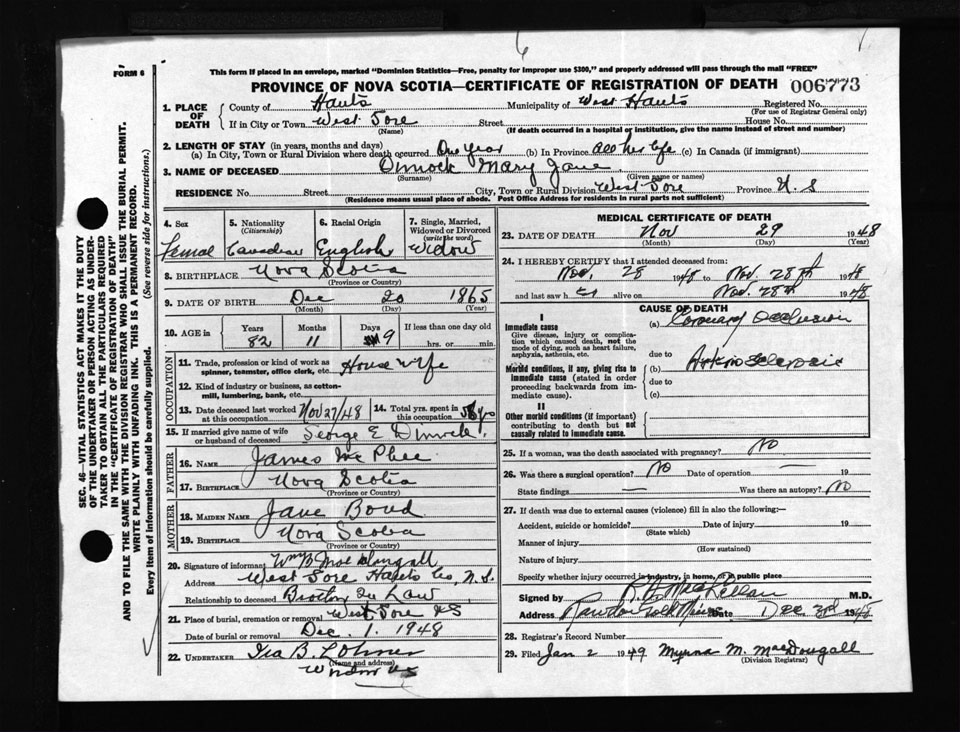 FORM 6
This form if placed in an envelope, marked "Dominion Statistics—Free, penalty for improper use $300," and properly addressed will pass through the mail "FREE"
PROVINCE OF NOVA SCOTIA—CERTIFICATE OF REGISTRATION OF DEATH 006773
1. PLACE OF DEATH
County of Hants Municipality of West Hants Registered No.
(For use of Registrar General only)
If in City or Town West Gore Street House No.
(Name) (If death occurred in a hospital or institution, give the name instead of street and number)
2. LENGTH OF STAY (in years, months and days)
(a) In City, Town or Rural Division where death occurred One Year (b) In Province All her life (c) In Canada (if immigrant)
3. NAME OF DECEASED Dimock Mary Jane
(Surname) (Given name or names)
RESIDENCE No. Street City, Town or Rural Division West Gore Province N.S
(Residence means usual place of abode. Post Office Address for residents in rural parts not sufficient)
4. Sex Femal
5. Nationality (Citizenship) Canadian
6. Racial Origin English
7. Single, Married, Widowed or Divorced (write the word) Widow
8. BIRTHPLACE Nova Scotia
(Province or Country)
9. DATE OF BIRTH Dec 20 1865
(Month) (Day) (Year)
10. AGE in Years Months Days If less than one day old
82 11 9 hrs. or min.
OCCUPATION
11. Trade, profession or kind of work as spinner, teamster, office clerk, etc. House Wife
12. Kind of industry or business, as cotton-mill, lumbering, bank, etc.
13. Date deceased last worked at this occupation Nov 27/48
14. Total yrs. spent in this occupation yrs
15. If married give name of wife or husband of deceased George E Dimock
FATHER
16. NAME James Mc Phee
17. BIRTHPLACE Nova Scotia
(Province or Country)
MOTHER
18. MAIDEN NAME Jane Bond
19. BIRTHPLACE Nova Scotia
(Province or Country)
20. Signature of informant Wm B Mac Dougall
Address West Gore Hants Co, N.S.
Relationship to deceased Brother In Law
21. Place of burial, cremation or removal West Gore NS
Date of burial or removal Dec. 1. 1948
22. UNDERTAKER Ira B.
(Name and address)
Windsor NS
MEDICAL CERTIFICATE OF DEATH
23. DATE OF DEATH Nov 29 1948
(Month) (Day) (Year)
24. I HEREBY CERTIFY that I attended deceased from:
Nov. 28 1948 to Nov. 28th 1948
and last saw h er alive on Nov. 28th 1948
CAUSE OF DEATH
I
Immediate cause
Give disease, injury or complication which caused death, not the mode of dying, such as heart failure, asphyxia, asthenia, etc.
(a) Coronary Occlusion
due to
Morbid conditions, if any, giving rise to immediate cause (stated in order proceeding backwards from immediate cause).
(b) Arteriosclerosis
due to
(c)
II
Other morbid conditions (if important) contributing to death but not causally related to immediate cause.
25. If a woman, was the death associated with pregnancy? No
26. Was there a surgical operation? No Date of operation — 19
State findings — Was there an autopsy? No
27. If death was due to external causes (violence) fill in also the following:—
Accident, suicide or homicide? Date of injury 19
(State which)
Manner of injury
(How sustained)
Nature of injury
Specify whether injury occurred in industry, in home, or in public place
Signed by MacLellan M.D.
Address Rawdon Gold Mines Date Dec 3rd 1948
28. Registrar's Record Number
29. Filed Jan 2 1949 Myrna M. MacDougall
(Division Registrar)
SEC. 46—VITAL STATISTICS ACT MAKES IT THE DUTY
OF THE UNDERTAKER OR PERSON ACTING AS UNDERTAKER TO OBTAIN ALL THE PARTICULARS REQUIRED
IN THE "CERTIFICATE OF REGISTRATION OF DEATH"
AND TO FILE THE SAME WITH THE DIVISION REGISTRAR WHO SHALL ISSUE THE BURIAL PERMIT.
WRITE PLAINLY WITH UNFADING INK. THIS IS A PERMANENT RECORD.
Every item of information should be carefully supplied. (See reverse side for instructions.)